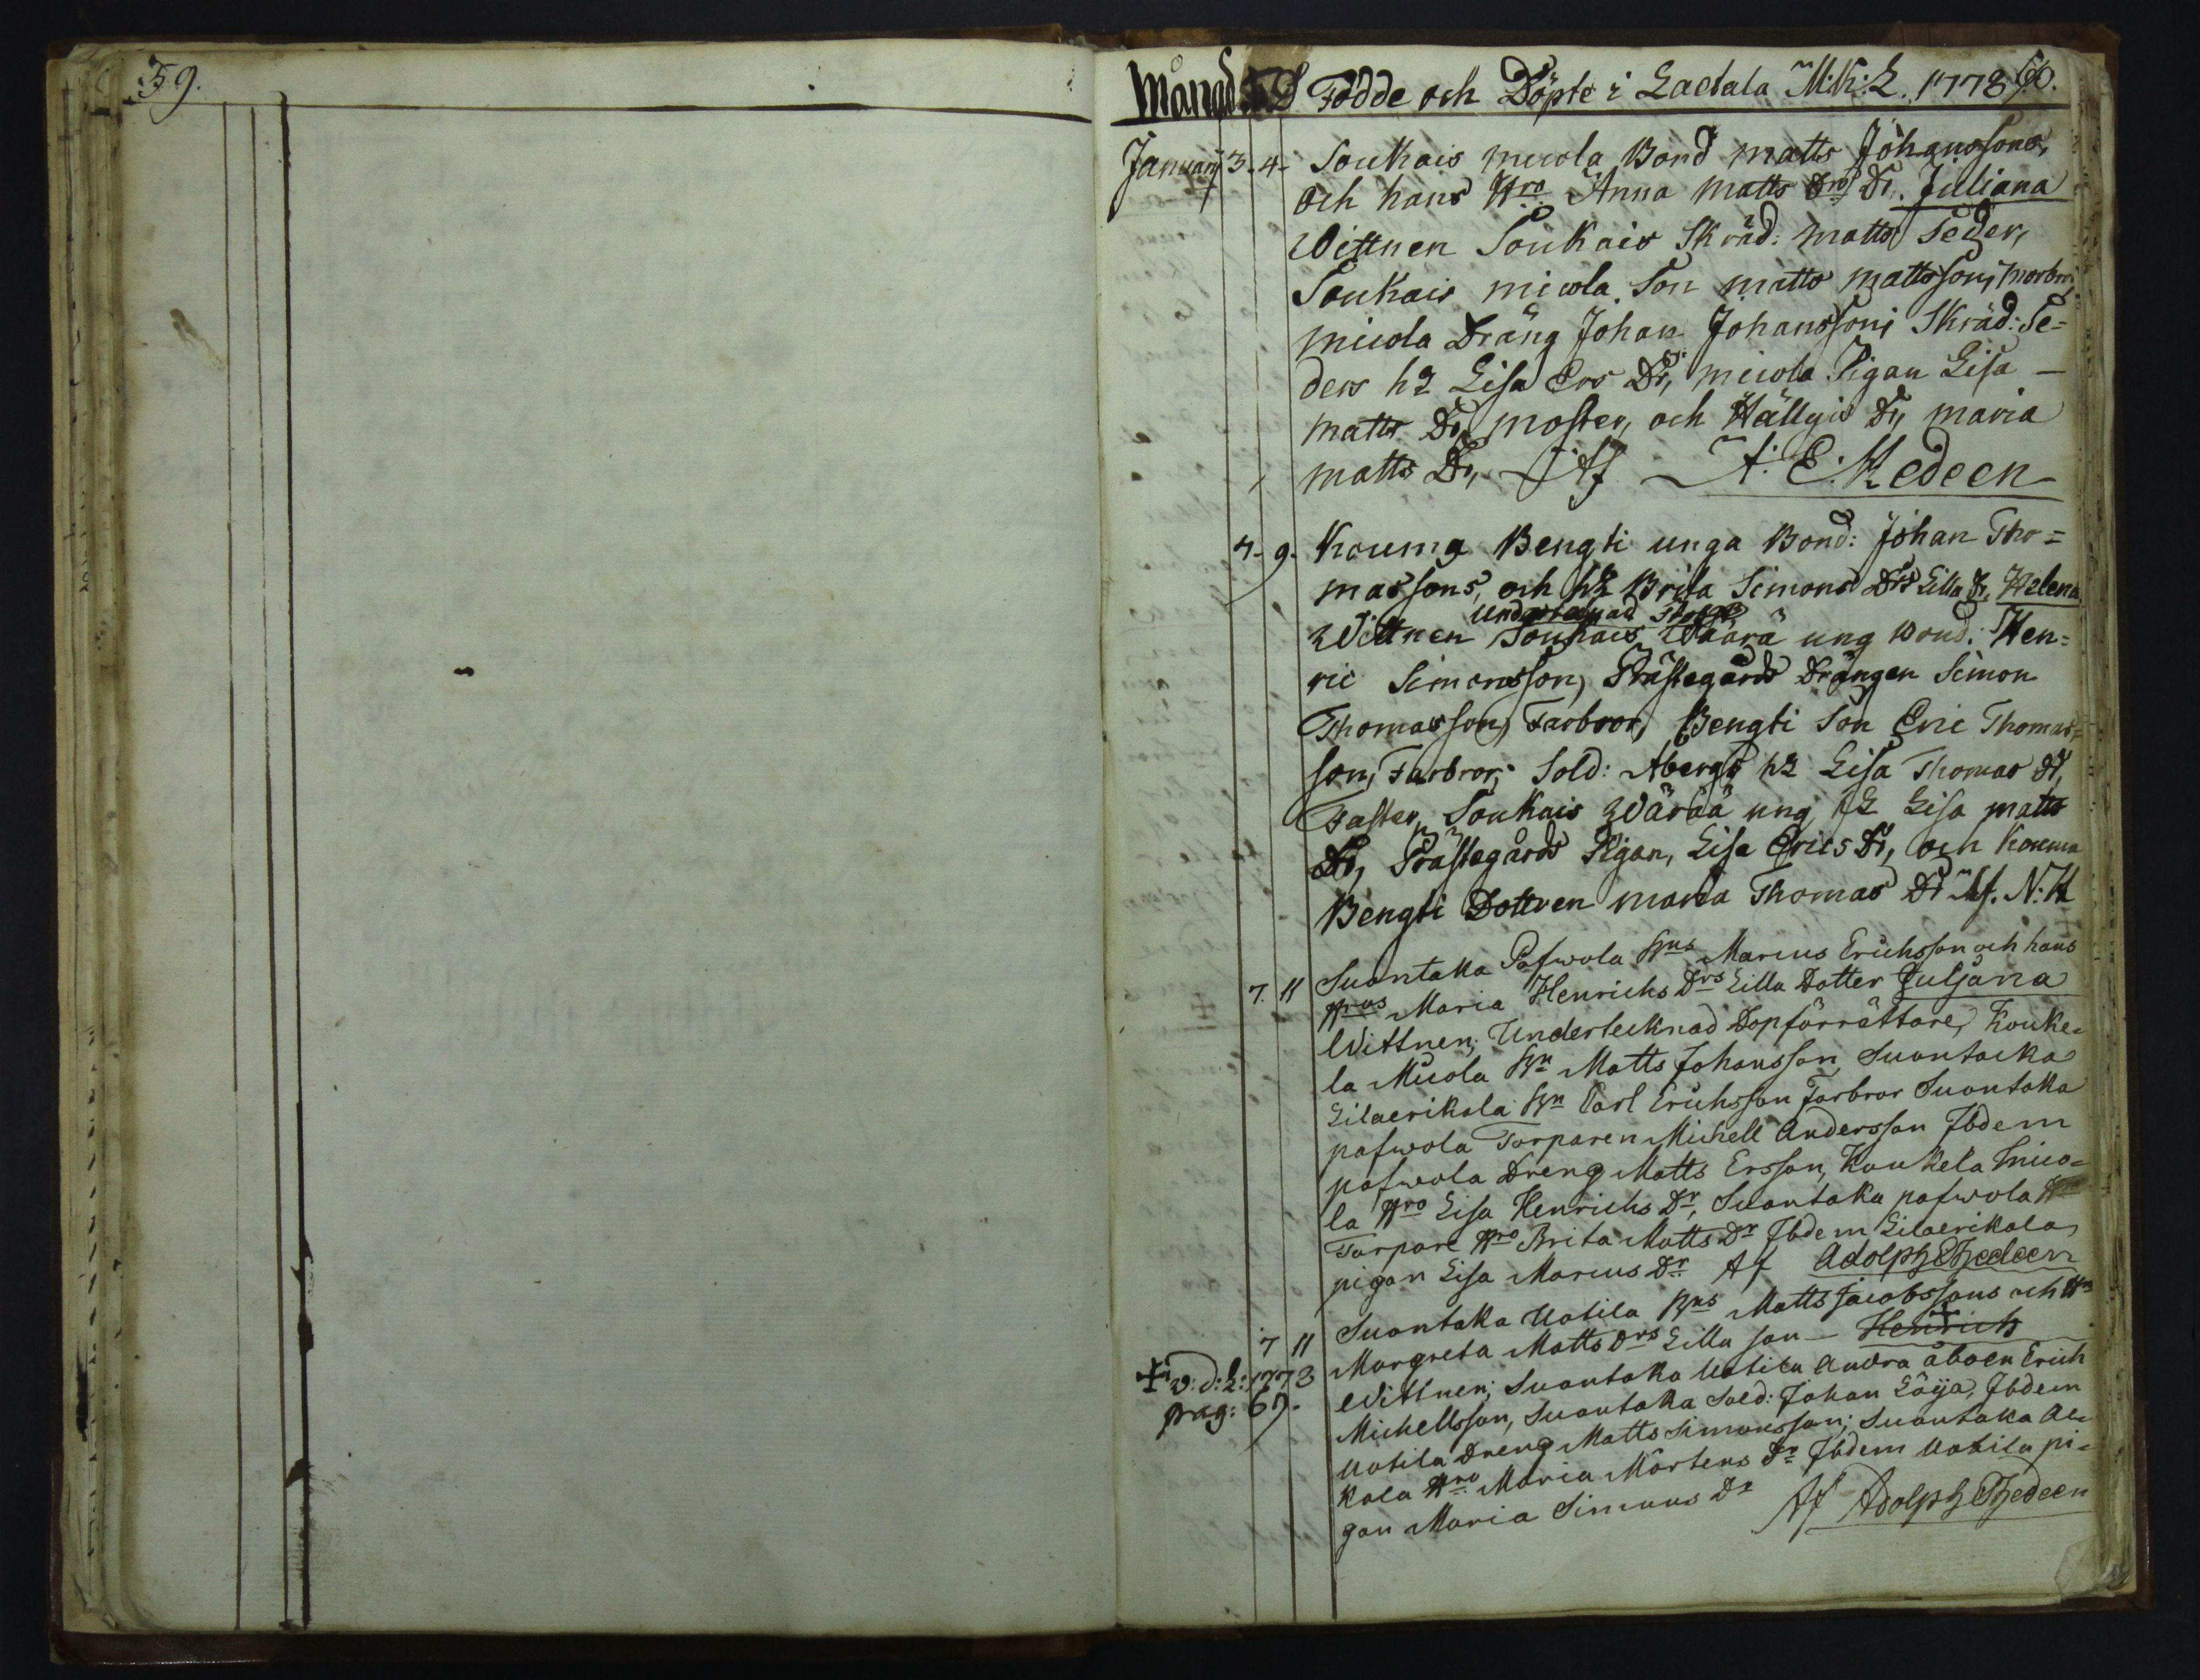 59.
Månad F D Födde och Döpte i Lactala M:K:L. 1778 60.
January 3. 4. Soukais micola Bond matts Johanssons,
och hans Hro Anna matts Drs Dr. Juliana
Wittnen Soukais Skräd: matts Seder,
Soukais micola Son matts mattsson, morbror,
micola Dräng Johan Johansson, Skräd: Se=
ders h2 Lisa Ers Dr, micola Pigan Lisa
matts Dr, moster, och Hällgis Dr, maria
matts Dr, Af A: E: Hedeen
4. 9. Kouma Bengti unga Bond: Johan Tho=
massons, och h2 Brita Simons Drs Lilla Dr, Helena
undertecknad
Wittnen Soukais Wäärä ung Bond. Hen=
ric Simonsson, Prästegårds Drängen Simon
Thomasson, Farbror, Bengti Son Eric Thomas=
son, Farbror, Sold: Abergs h2 Lisa Thomas Dr,
Faster, Soukais Wäräa ung h2 Lisa matts
Dr, Prästegårds Pigan, Lisa Erics Dr, och Kouma
Bengti Dottren maria Thomas Dr Af. N: H
7. 11 Suontaka Pafwola Bns Marcus Erichsson och hans
Hrus Maria Henrichs Drs Lilla Dotter Juljana
Wittnen, Undertecknad Dopförrättare, Kouke=
la Micola Bn Matts Johansson, Suontacka
Lilaerikala Bn Carl Erichsson Farbror Suontaka
pafwola Torparen Michell Andersson Ibdem
pafwola Dreng Matts Ersson, Koukela Mico=
la Hro Lisa Henrichs Dr, Suontaka pafwola
Torpare Hro Brita Matts Dr Ibdem Lilaerikala
pigan Lisa Marcus Dr Af Adolph Hedeen
7 11 Suontaka Uotila Bns Matts Jacobssons och Hs
Margreta Matts Drs Lilla son — Henrich
✝ v: d: 2: 1773
pag: 67.
Wittnen; Suontaka Uotila Andra åboen Erich
Michellsson, Suontaka Sold: Johan Löija, Ibdem
Uotila Dreng Matts Simonsson; Suontaka Ae=
kala Hro Maria Mårtens Dr Ibdem Uotila pi=
gan Maria Simons Dr Af Adolph Hedeen